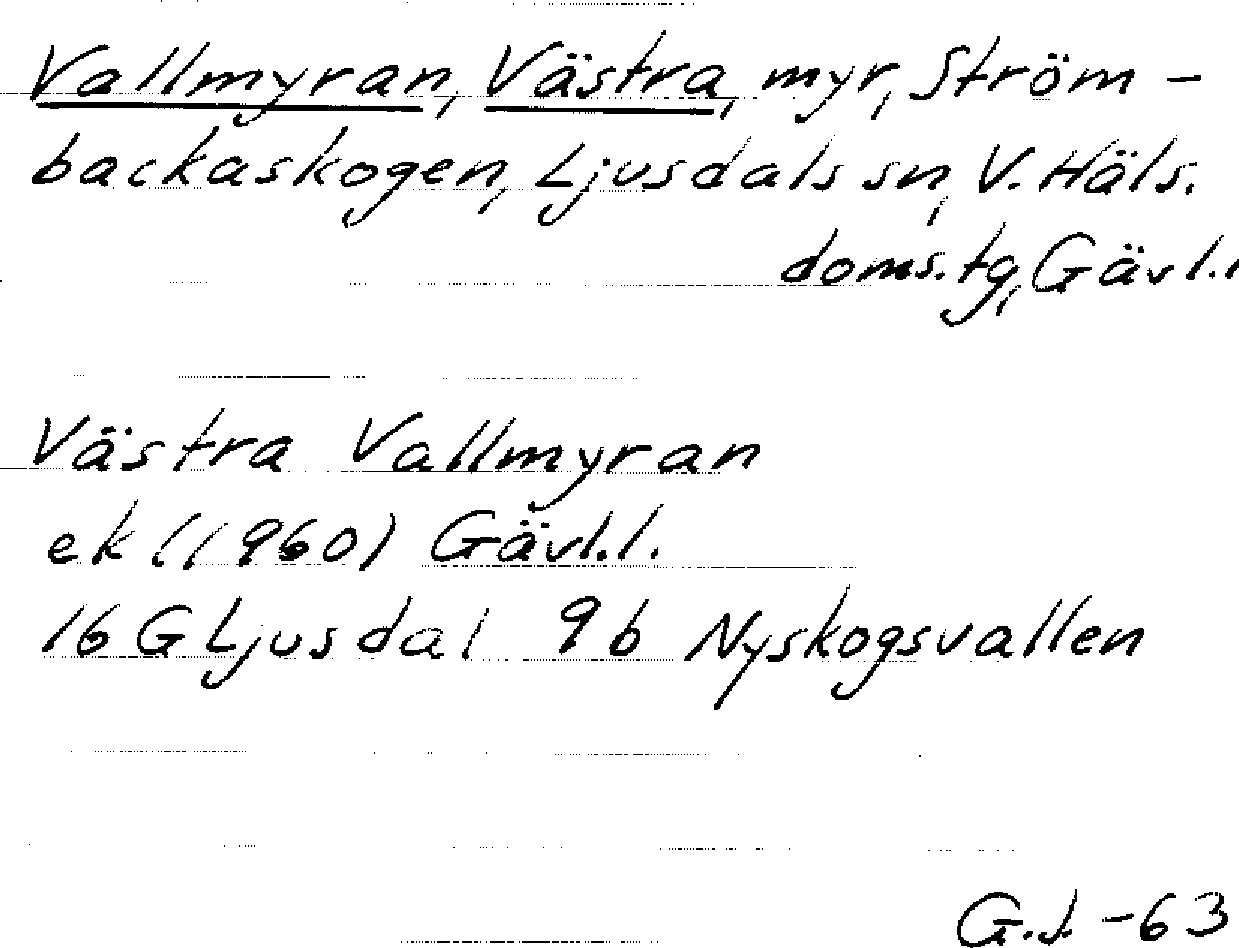 Vallmyran, Västra, myr, Ström-
backaskogen, Ljusdals sn, V. Häls.
doms.tg, Gävl.l
Västra Vallmyran
ek (1960) Gävl.l.
16 G Ljusdal 9b Nyskogsvallen
G.J. -63